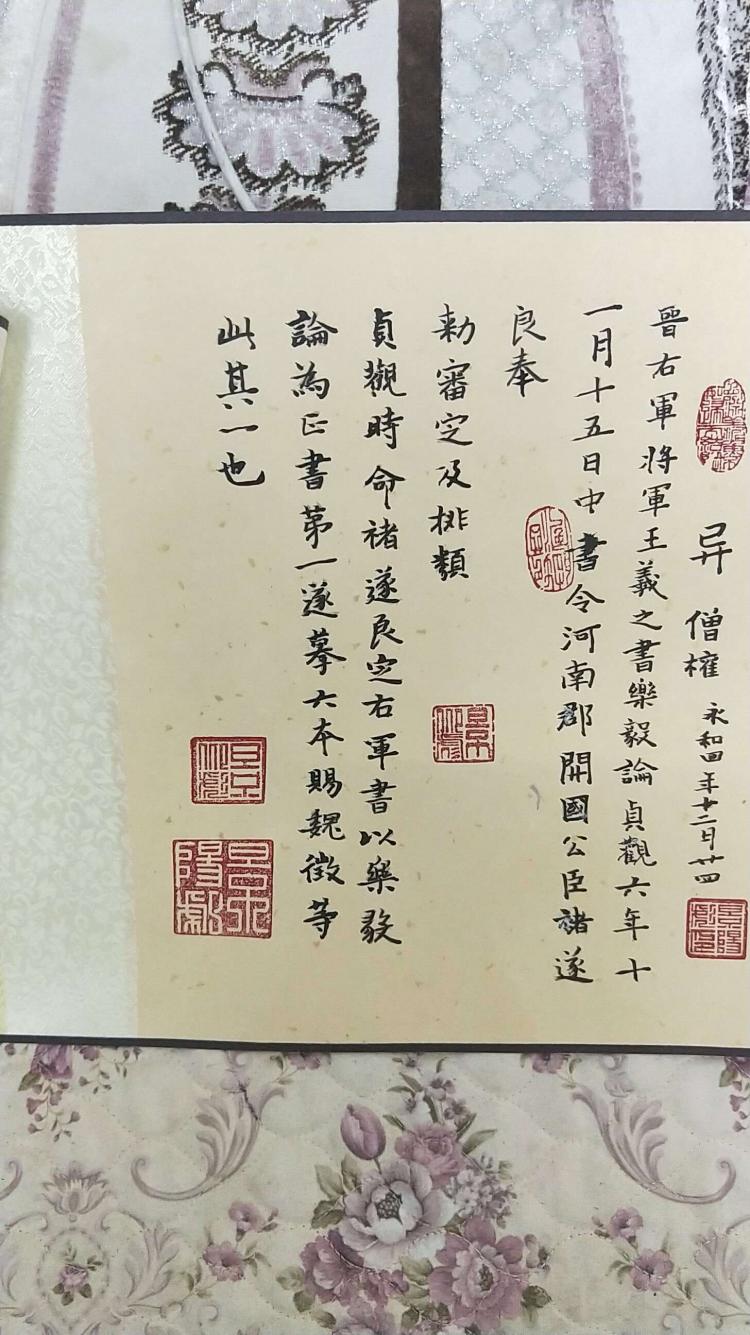 异
僧權
永和四年十二月廿四
晉右軍將軍王羲之書樂毅論貞觀六年十
一月十五日中書令河南郡開國公臣褚遂
良奉
勑審定及排類
貞觀時命褚遂良定右軍書以樂毅
論為正書第一遂摹六本賜魏徵等
此其一也